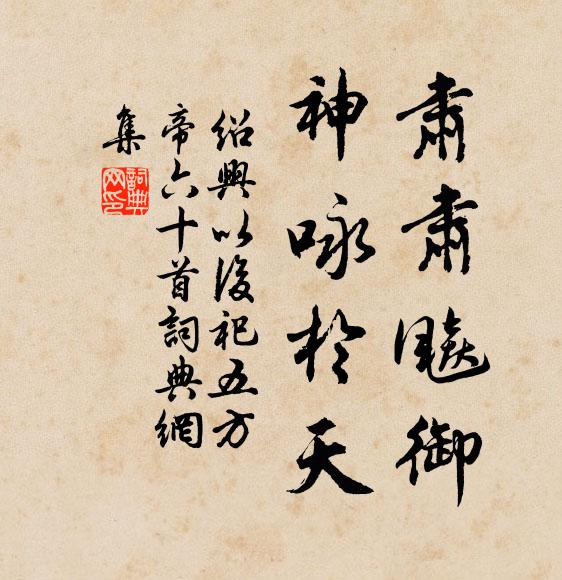 肅肅飇御
神咏於天
紹興以後祀五方
帝六十首詞典網
集
詞典
网印